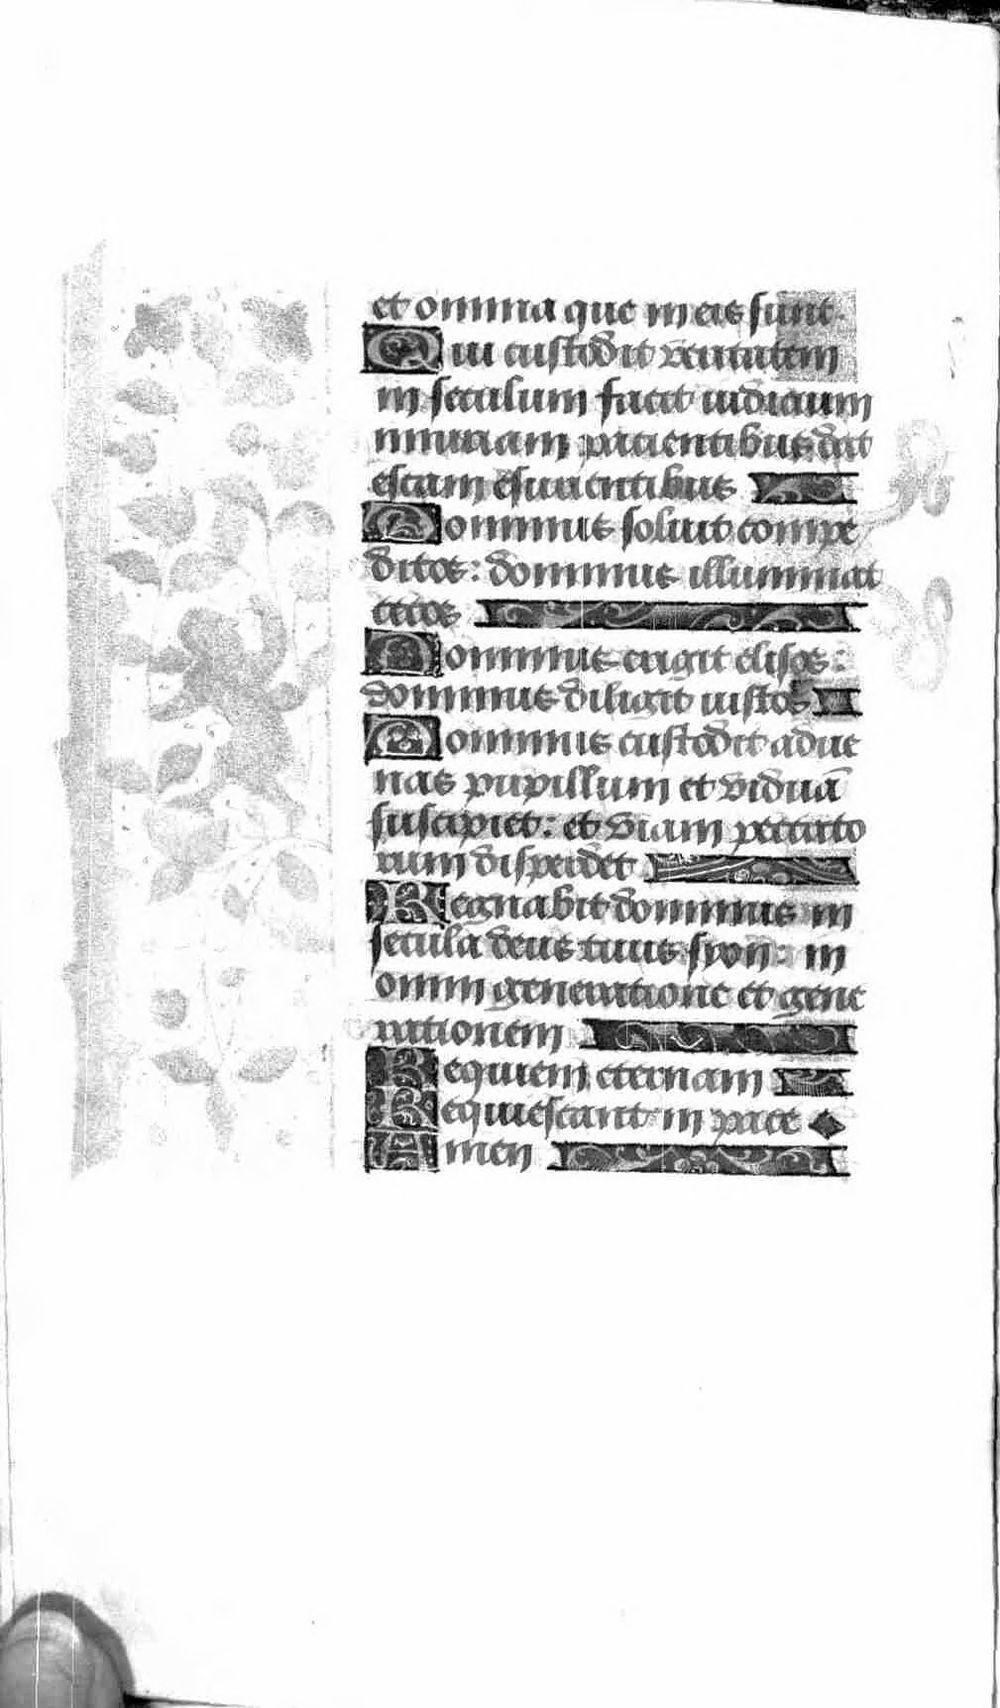 et omnia que in eis sunt.
Qui custodit veritatem
in seculum facit iudicium
iniuriam pacientibus dat
escam esurientibus
Dominus soluit compe
ditos: dominus illuminat
cecos
Dominus erigit elisos:
dominus diligit iustos
Dominus custodit adue
nas pupillum et viduã
suscipiet: et viam peccato
rum disperdet
Regnabit dominus in
secula deus tuus syon: in
omni generatione et gene
rationem
Requiem eternam
Requiescant in pace
Amen